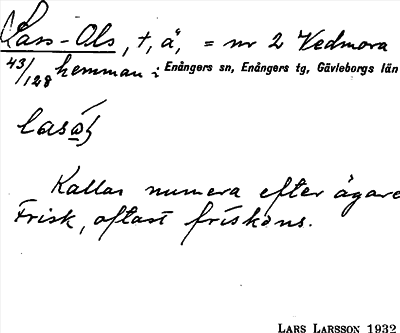 Lass-Ols, †, ä, = nr 2 Vedmora
43/128 hemman i Enångers sn, Enångers tg, Gävleborgs län
Kallas numera efter ägare
Frisk, oftast friskens.
LARS LARSSON 1932